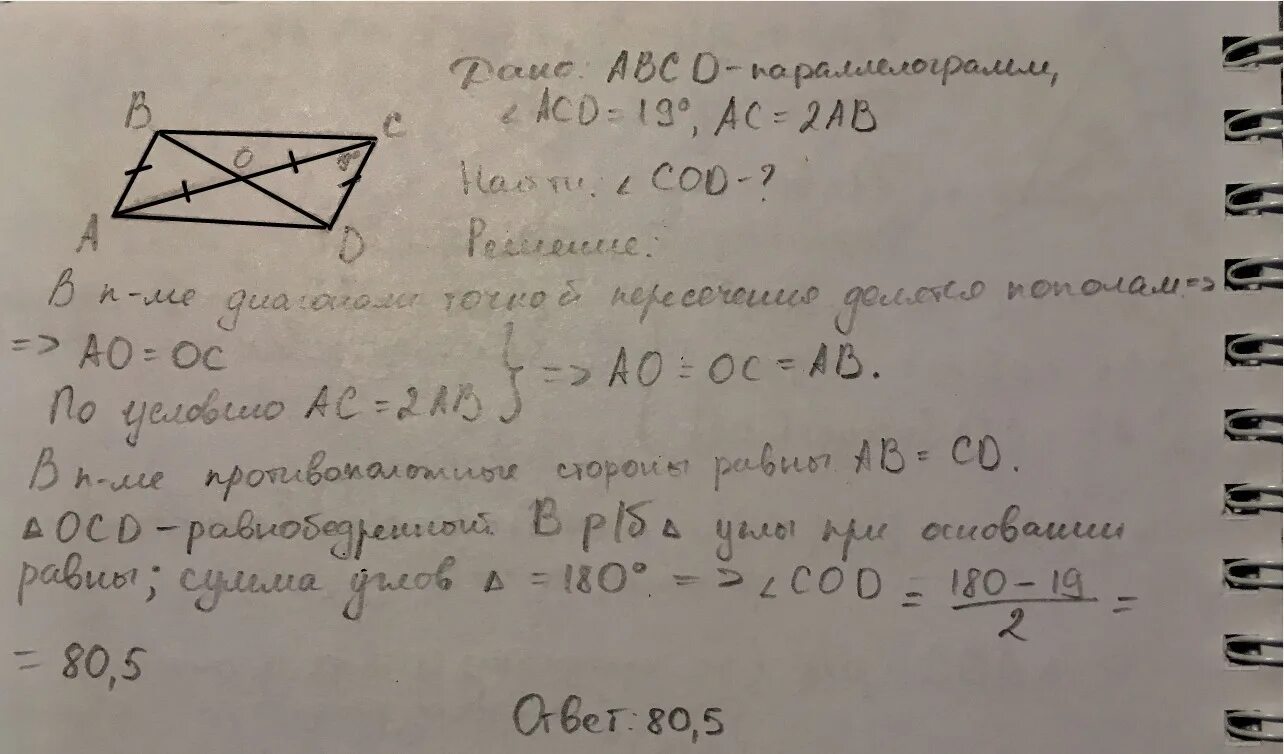 Дано: ABCD-параллелограмм,
∠ACD=19°, AC=2AB
Найти: ∠COD-?
Решение:
B
C
O
A
D
В п-ме диагонали точкой пересечения делятся пополам =>
=> AO=OC
По условию AC=2AB } => AO=OC=AB.
В п-ме противоположные стороны равны AB=CD.
△OCD-равнобедренный. В р/б △ углы при основании
равны; сумма углов △ =180° => ∠COD = (180-19)/2 =
= 80,5
Ответ: 80,5